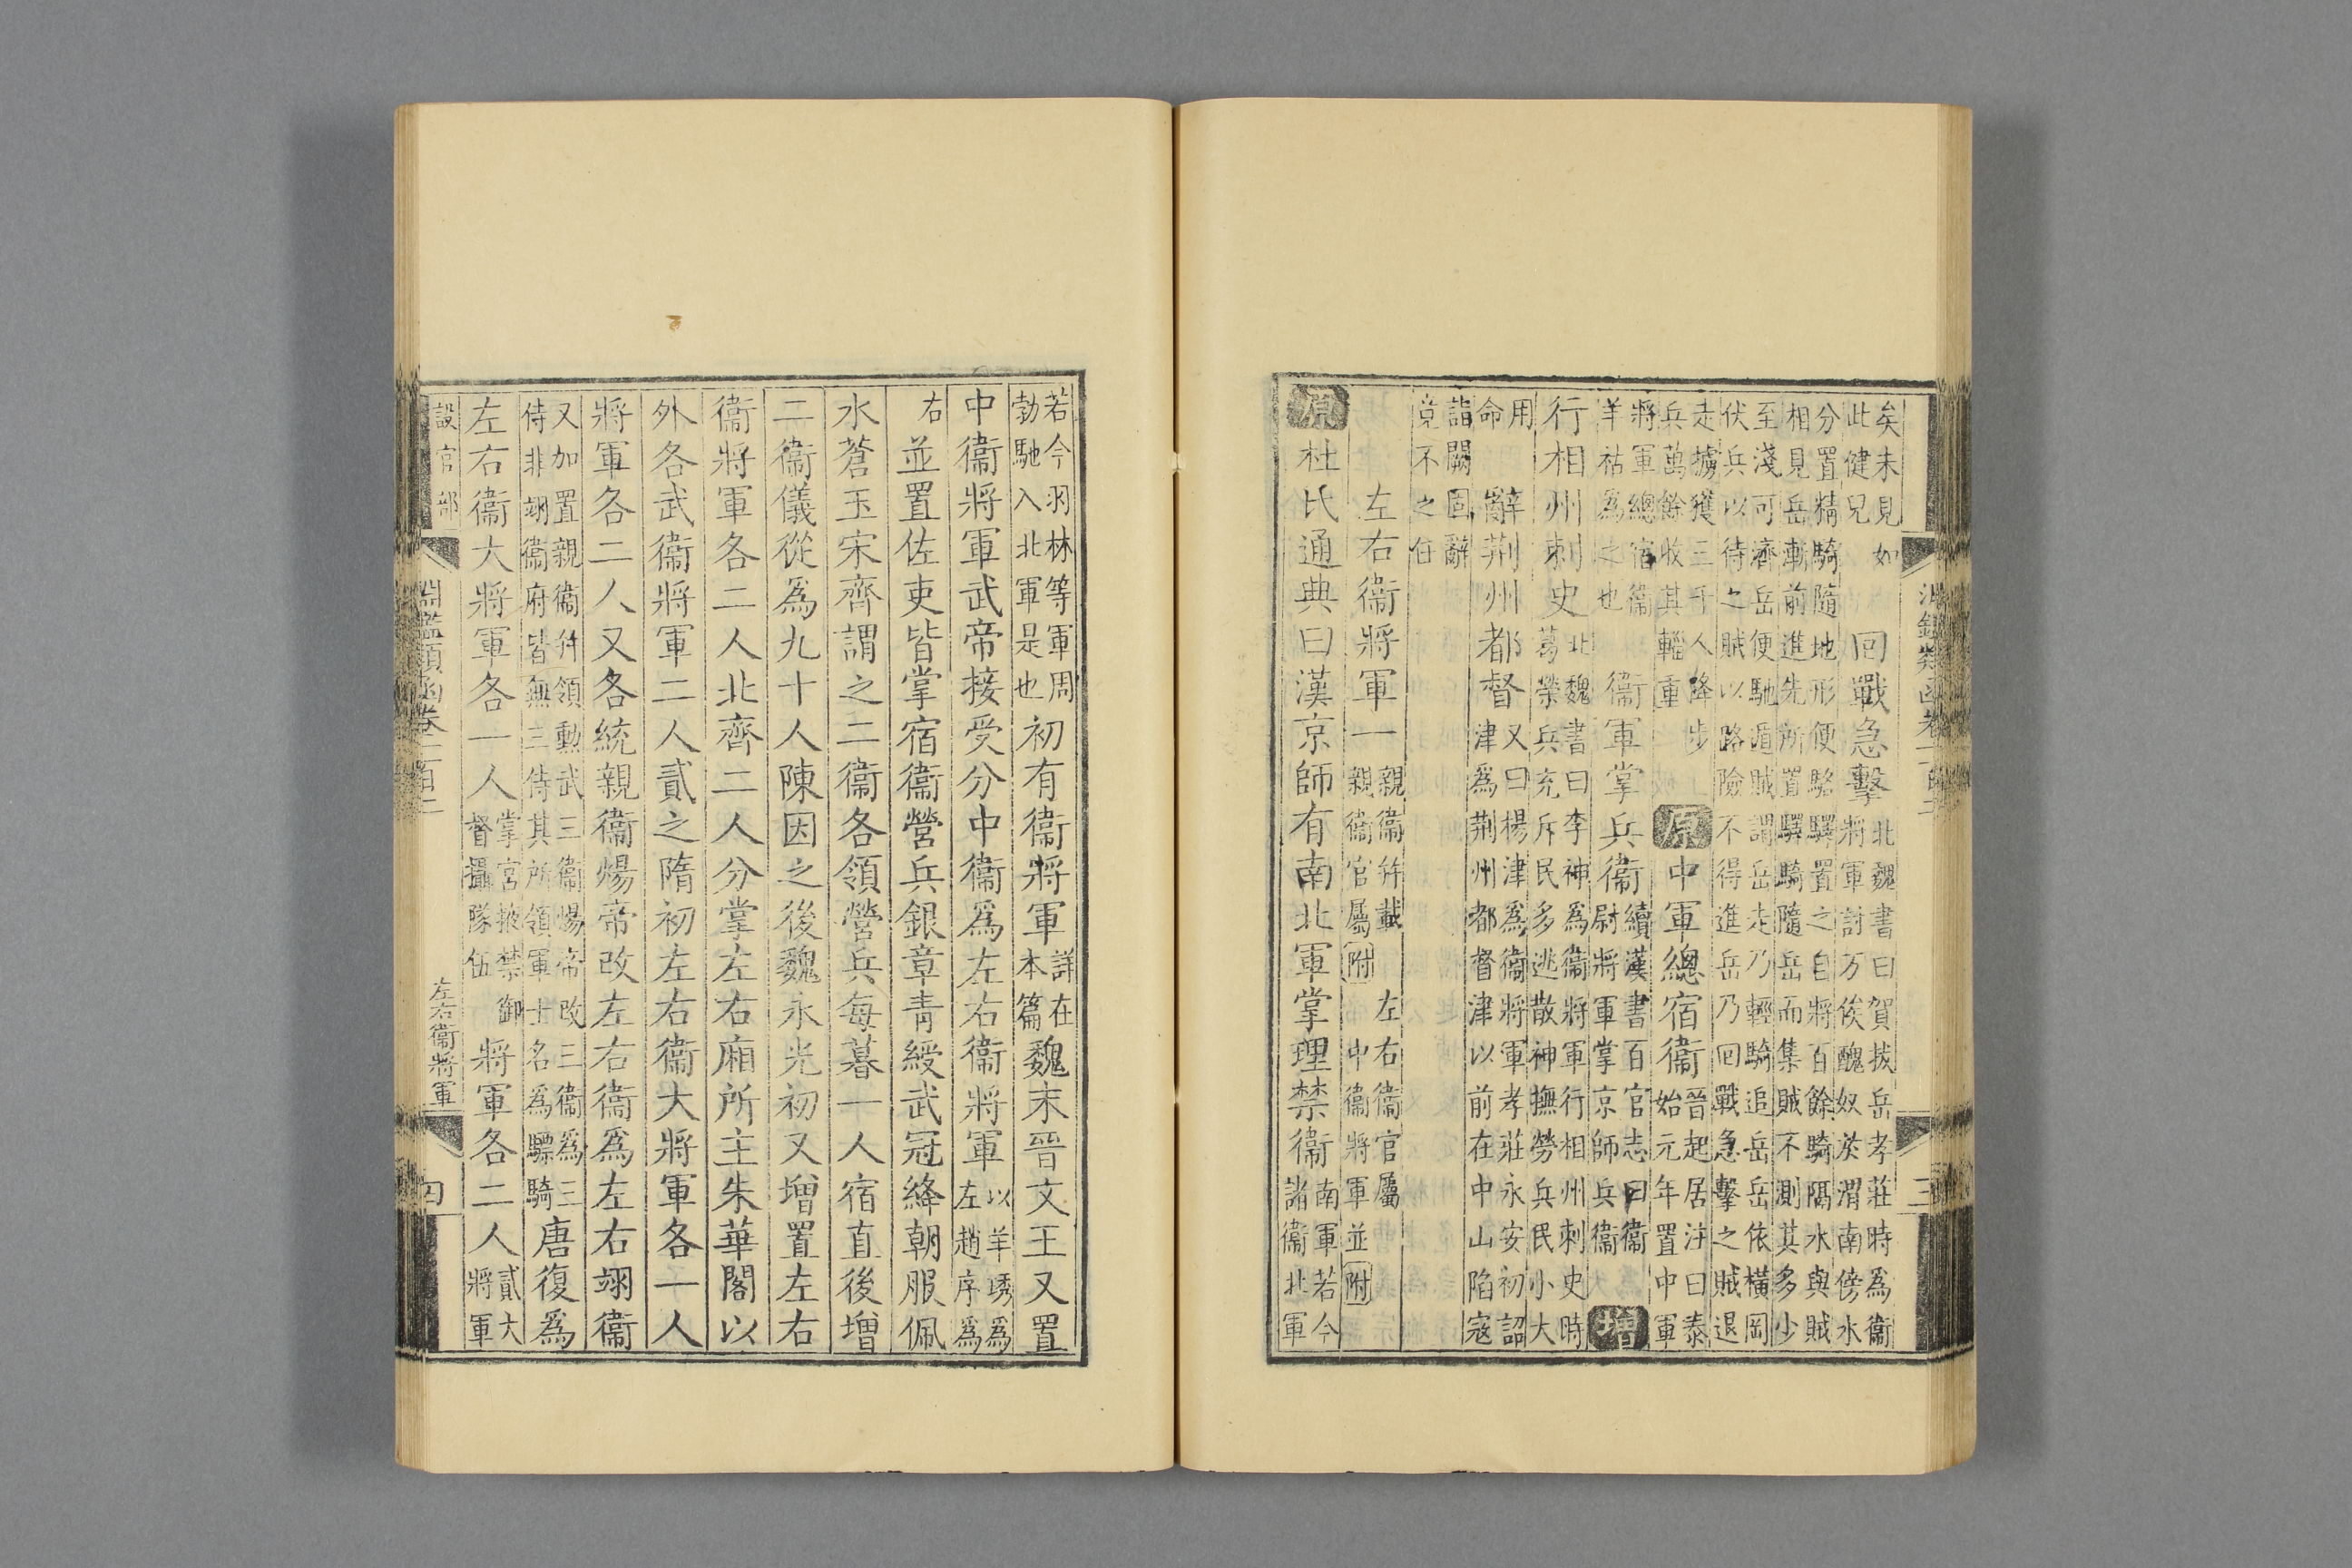 矣未見如
此健兒
回戰急擊
北魏書曰賀拔岳孝莊時爲衞
將軍討万俟醜奴於渭南傍水
分置精騎隨地形便駱驛置之自將百餘騎隔水與賊
相見岳漸前進先所置驛騎隨岳而集賊不測其多少
至淺可濟岳便馳遁賊謂岳走乃輕騎追岳岳依橫岡
伏兵以待之賊以路險不得進岳乃回戰急擊之賊退
走擄獲三千人降步
兵萬餘收其輜重
原中軍總宿衞
晉起居注曰泰
始元年置中軍
將軍總宿衞
羊祜爲之也
衞軍掌兵衞
續漢書百官志曰衞
尉將軍掌京師兵衞
增
行相州刺史
北魏書曰李神爲衞將軍行相州刺史時
葛榮兵充斥民多逃散神撫勞兵民小大
用
命
辭荆州都督
又曰楊津爲衞將軍孝莊永安初詔
津爲荆州都督津以前在中山陷寇
詣闕固辭
竟不之任
左右衞將軍一
親衞幷載
親衞官屬附
左右衞官屬
中衞將軍並附
原杜氏通典曰漢京師有南北軍掌理禁衞
南軍若今
諸衞北軍
淵鑑類函卷一百二
三
若今羽林等軍周
勃馳入北軍是也
初有衞將軍
詳在
本篇
魏末晉文王又置
中衞將軍武帝接受分中衞爲左右衞將軍
以羊琇爲
左趙序爲
右
並置佐吏皆掌宿衞營兵銀章青綬武冠絳朝服佩
水蒼玉宋齊謂之二衞各領營兵每暮一人宿直後增
二衞儀從爲九十人陳因之後魏永光初又增置左右
衞將軍各二人北齊二人分掌左右廂所主朱華閣以
外各武衞將軍二人貳之隋初左右衞大將軍各一人
將軍各二人又各統親衞煬帝改左右衞爲左右翊衞
又加置親衞幷領勳武三衞煬帝改三衞爲三
侍非翊衞府皆無三侍其所領軍士名爲驃騎
唐復爲
左右衞大將軍各一人
掌宮掖禁御
督攝隊伍
將軍各二人
貳大
將軍
淵鑑類函卷一百二
設官部
左右衞將軍
四